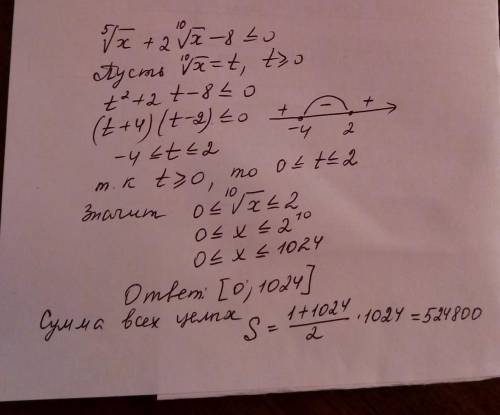 ⁵√x + 2 ¹⁰√x - 8 ≤ 0
Пусть ¹⁰√x = t, t ≥ 0
t² + 2 t - 8 ≤ 0
(t + 4) (t - 2) ≤ 0
+ - +
-4 2
-4 ≤ t ≤ 2
т.к t ≥ 0, то 0 ≤ t ≤ 2
Значит 0 ≤ ¹⁰√x ≤ 2
0 ≤ x ≤ 2¹⁰
0 ≤ x ≤ 1024
Ответ: [0; 1024]
Сумма всех целых S = (1+1024)/2 · 1024 = 524800